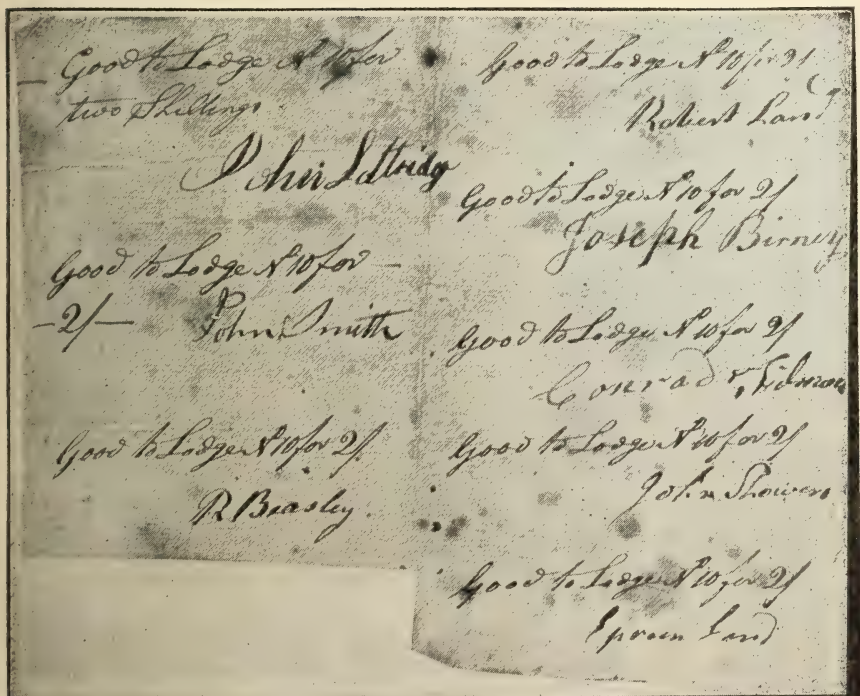 Good to Lodge No 10 for
two Shillings
John
Good to Lodge No 10 for
2/
John Smith
Good to Lodge No 10 for 2/
R Beasley
Good to Lodge No 10 for 2/
Robert Land
Good to Lodge No 10 for 2/
Joseph Birney
Good to Lodge No 10 for 2/
Conrad
Good to Lodge No 10 for 2/
John Showers
Good to Lodge No 10 for 2/
Land